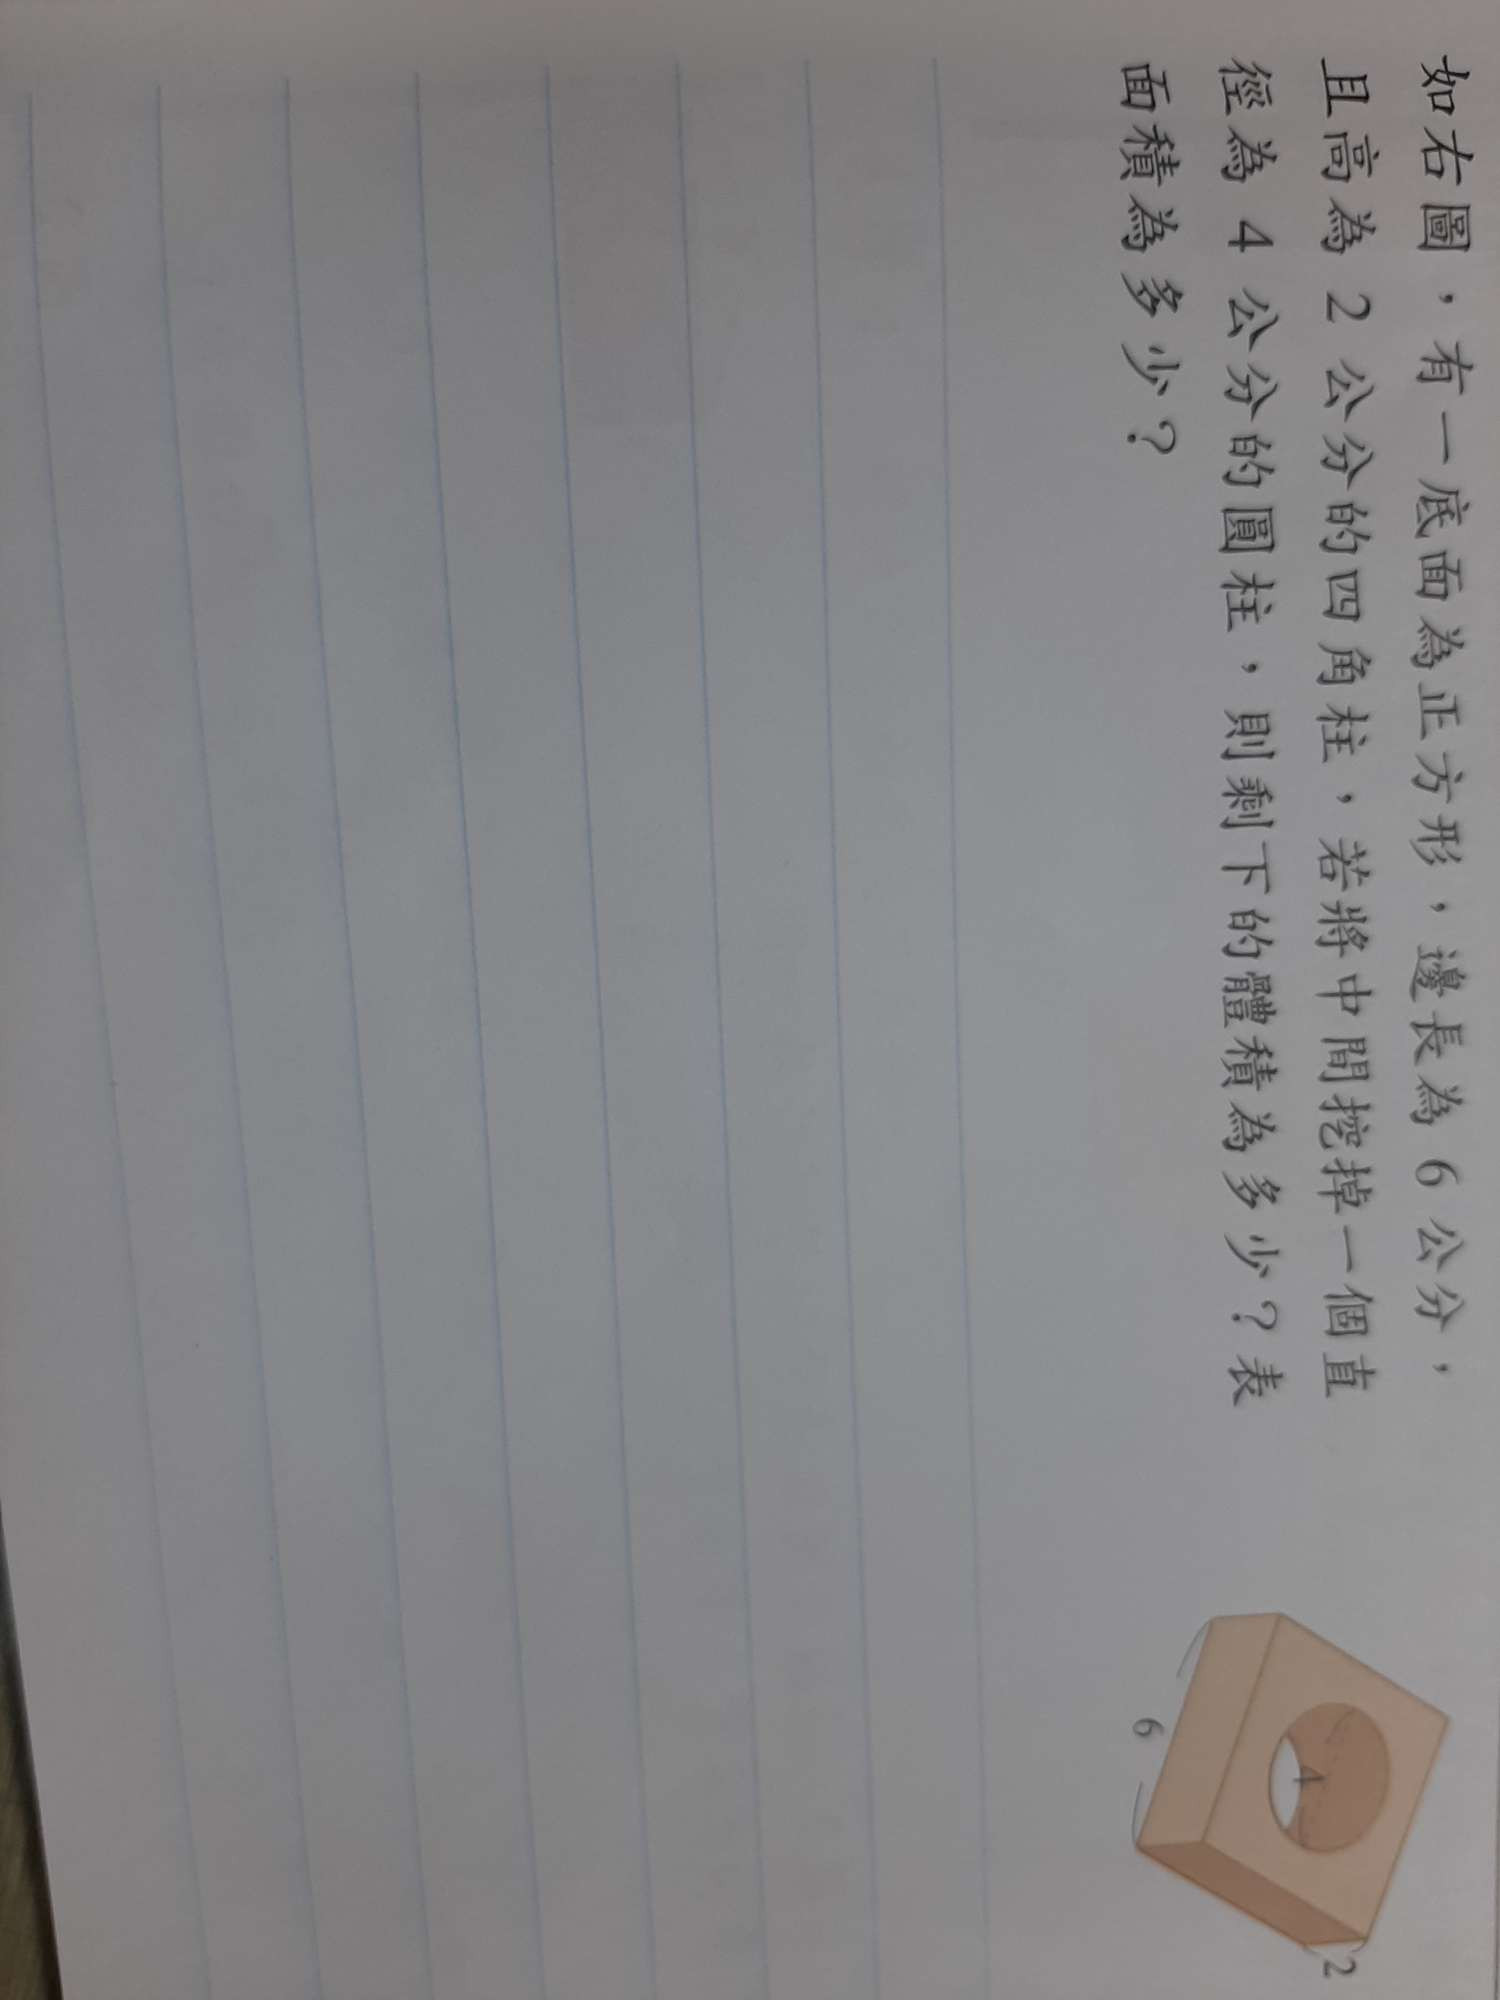 如右圖，有一底面為正方形，邊長為 6 公分，
且高為 2 公分的四角柱，若將中間挖掉一個直
徑為 4 公分的圓柱，則剩下的體積為多少？表
面積為多少？
4
6
2